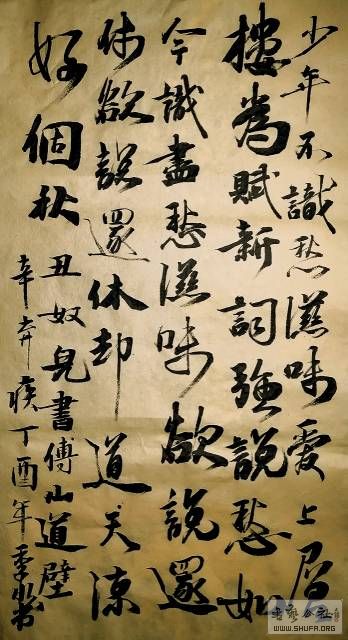 少年不識愁滋味愛上層
樓為賦新詞強說愁如
今識盡愁滋味欲說還
休欲說還休却道天涼
好個秋
丑奴兒書傅山道壁
辛弃疾丁酉年季
書藝公社
WWW.SHUFA.ORG